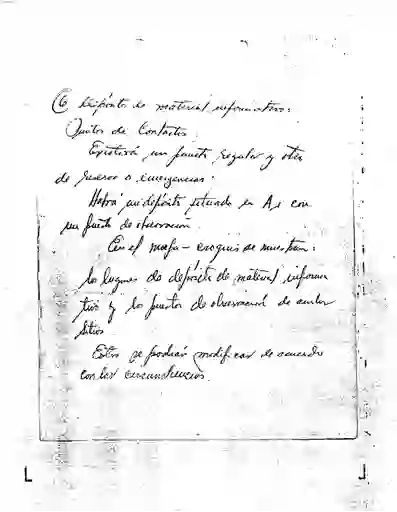 6 Depósito de material informativo:
Puntos de Contactos
Existirá un puesto regular y otro
de reserva o emergencias:
Habrá un depósito situado en A, con
un puesto de observacion
En el mapa - croquis se muestran:
los lugares de depósito de material informa
tivo y los puestos de observacion de ambos
sitios
Estos se podrán modificar de acuerdo
con las circunstancias.